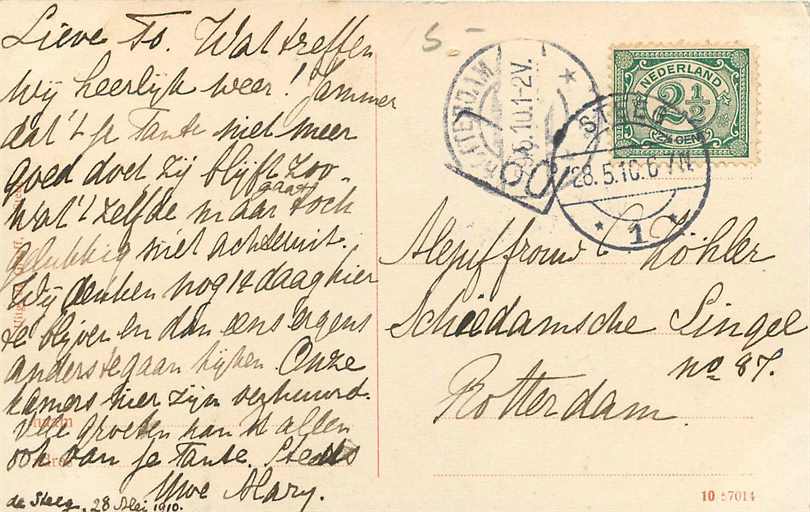 Lieve To. Wat treffen
wij heerlijk weer! Jammer
dat 't je Tante niet meer
goed doet zij blijft zoo-
wat 't zelfde maar gaat toch
gelukkig niet achteruit.
Wij denken nog 14 daag hier
te blijven en dan eens ergens
anders te gaan kijken. Onze
kamers hier zijn verhuurd.
Vele groeten van st allen
ook van je Tante. Steeds
Uwe Mary.
de Steeg, 28 Mei 1910.
5.-
ROTTERDAM
5.10.1-2V.
NEDERLAND
2½
CENT
STEEG
28.5.10.6-7N
1
Mejuffrouw C Köhler
Schiedamsche Singel
no 87.
Rotterdam.
10 57014